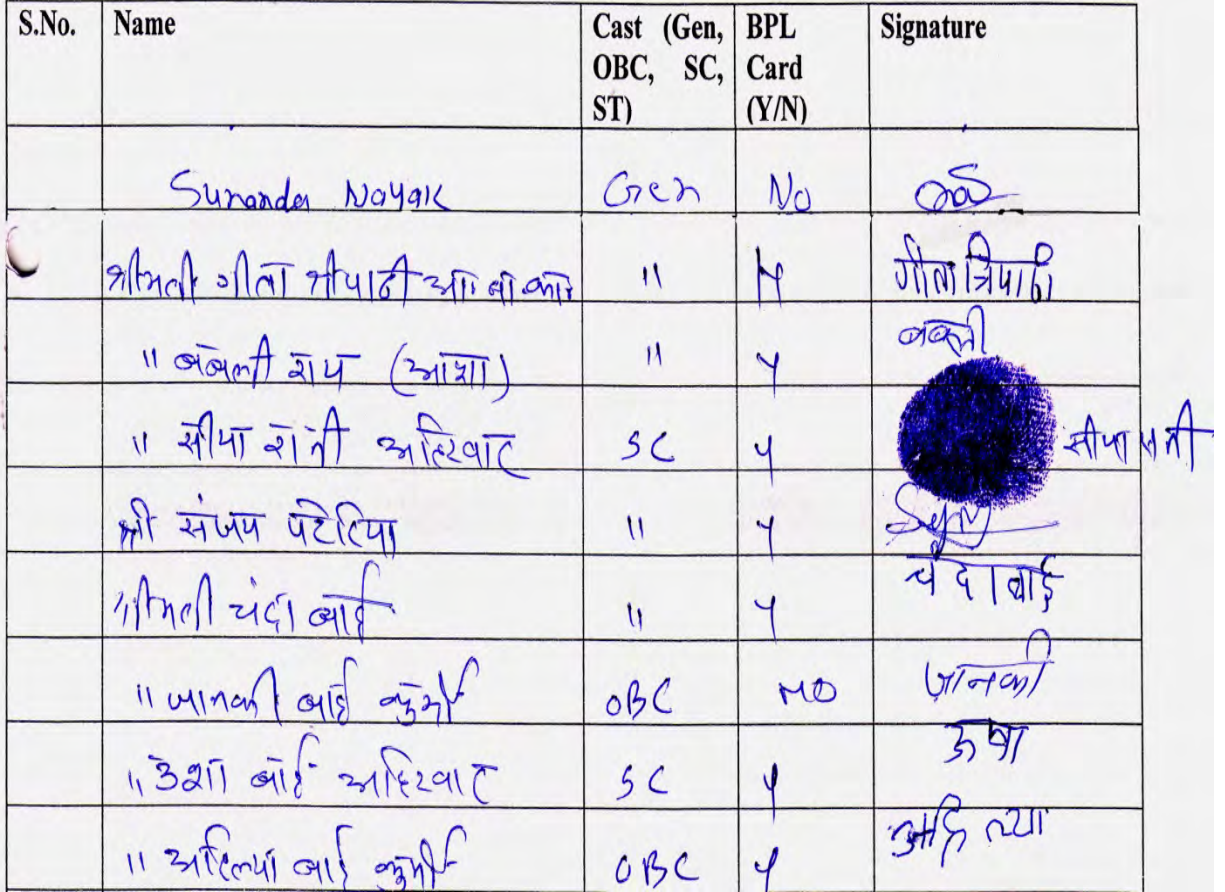 S.No. Name Cast (Gen, OBC, SC, ST) BPL Card (Y/N) Signature
Sunanda Nayak Gen No
श्रीमती गीता त्रीपाठी आं. बा. कार्य " N गीता त्रिपाठी
" बबली राय (आशा) " Y बबली
" सीया रानी अहिरवाट SC Y सीया रानी
श्री संजय पटेरिया " Y
श्रीमती चंदा बाई " Y चंदा बाई
" जानकी बाई कुर्मी OBC NO जानकी
" उशा बाई अहिरवाट SC Y ऊषा
" अहिल्या बाई कुर्मी OBC Y अहिल्या